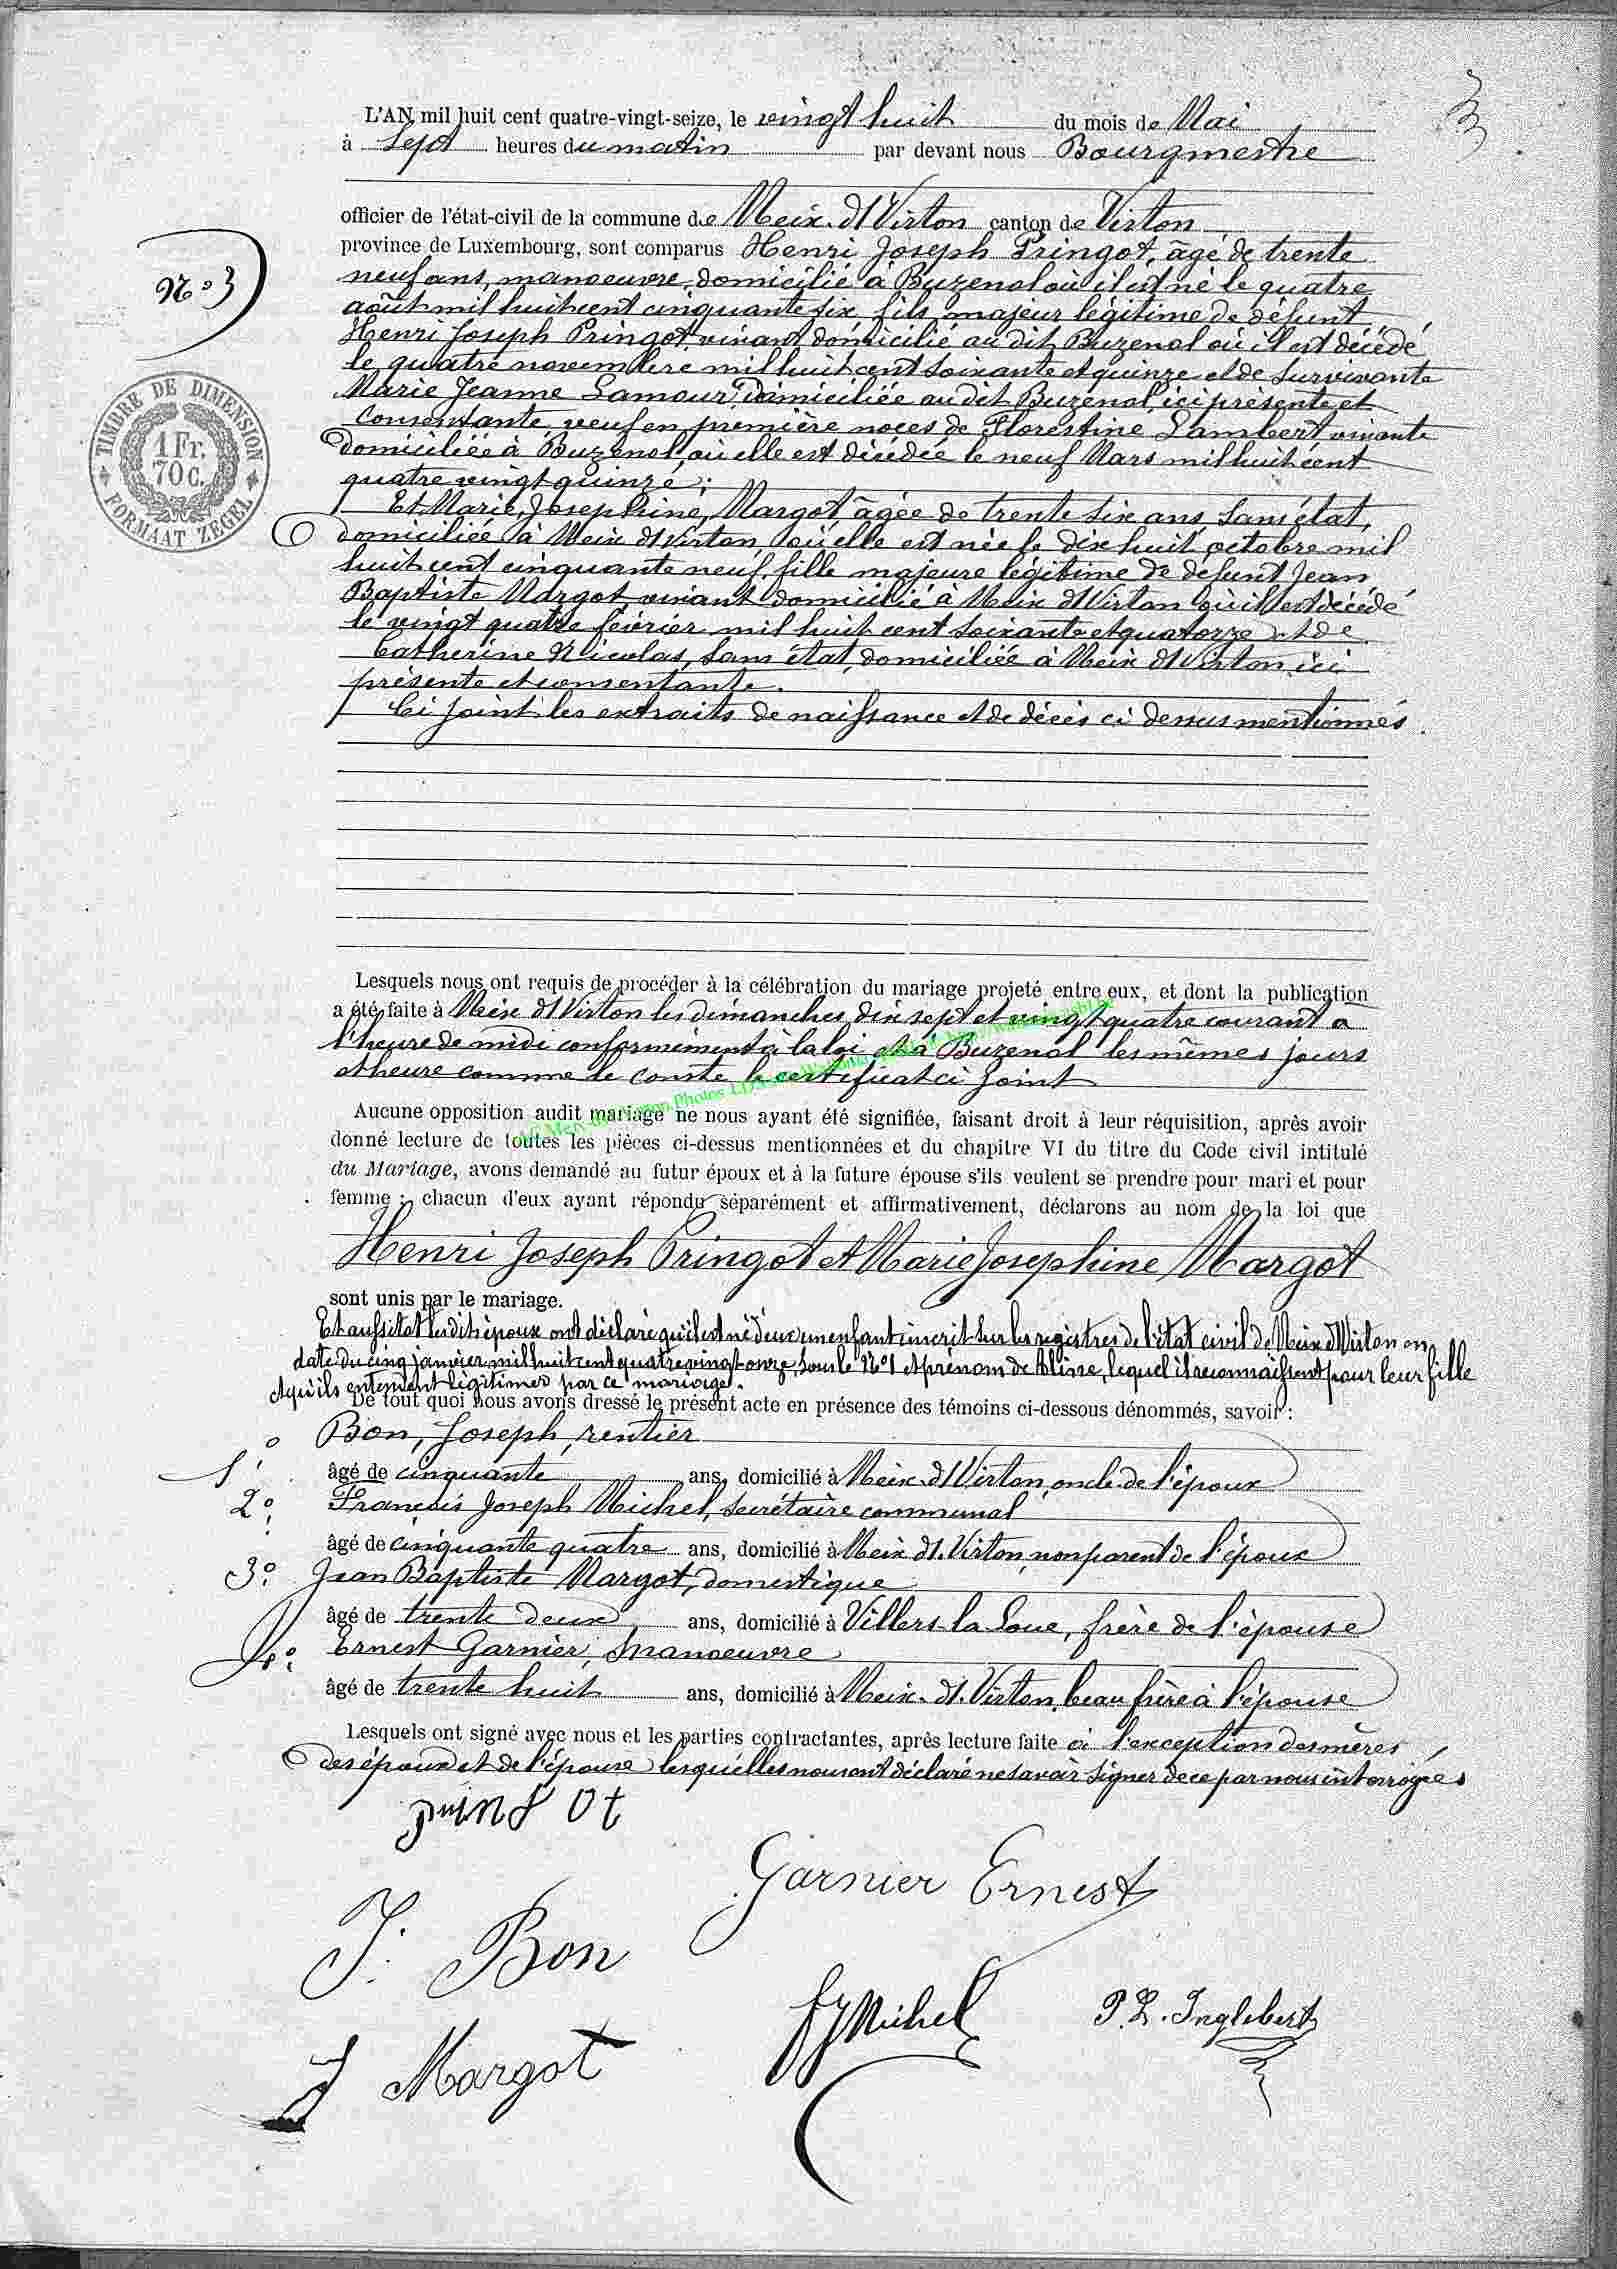 L'AN mil huit cent quatre-vingt-seize, le vingt huit du mois de Mai
à Sept heures du matin par devant nous Bourgmestre
officier de l'état-civil de la commune de Meix dt Virton canton de Virton
province de Luxembourg, sont comparus Henri Joseph Pringot, âgé de trente
neuf ans, manoeuvre, domicilié à Buzenol où il est né le quatre
août mil huit cent cinquante six, fils majeur légitime de défunt
Henri Joseph Pringot vivant domicilié au dit Buzenol où il est décédé
le quatre novembre mil huit cent soixante et quinze et de survivante
Marie Jeanne Lamour, domiciliée au dit Buzenol, ici présente et
consentante, veuf en première noces de Florestine Lambert vivante
domiciliée à Buzenol où elle est décédée le neuf Mars mil huit cent
quatre vingt quinze;
Et Marie, Josephine, Margot âgée de trente six ans, sans état,
domiciliée à Meix dt Virton où elle est née le dix huit octobre mil
huit cent cinquante neuf, fille majeure légitime de défunt Jean
Baptiste Margot vivant domicilié à Meix dt Virton où il est décédé
le vingt quatre février mil huit cent soixante et quatorze et de
Catherine Nicolas, sans état, domiciliée à Meix dt Virton, ici
présente et consentante.
Ci joint les extraits de naissance et de décès ci dessus mentionnés.
N° 3
TIMBRE DE DIMENSION
1 Fr.
70 c.
FORMAAT ZEGEL
Lesquels nous ont requis de procéder à la célébration du mariage projeté entre eux, et dont la publication
a été faite à Meix dt Virton les dimanches dix sept et vingt quatre courant à
l'heure de midi conformément à la loi et à Buzenol les mêmes jours
et heure comme le conste le certificat ci joint
Aucune opposition audit mariage ne nous ayant été signifiée, faisant droit à leur réquisition, après avoir
donné lecture de toutes les pièces ci-dessus mentionnées et du chapitre VI du titre du Code civil intitulé
du Mariage, avons demandé au futur époux et à la future épouse s'ils veulent se prendre pour mari et pour
femme ; chacun d'eux ayant répondu séparément et affirmativement, déclarons au nom de la loi que
Henri Joseph Pringot et Marie Josephine Margot
sont unis par le mariage.
Et aussitot les dits époux ont déclaré qu'il est né d'eux un enfant inscrit sur les registres de l'état civil de Meix dt Virton en
date du cinq janvier mil huit cent quatre vingt onze, sous le N° 1 et prénom de Aline, lequel ils reconnaissent pour leur fille
et qu'ils entendent légitimer par ce mariage.
De tout quoi nous avons dressé le présent acte en présence des témoins ci-dessous dénommés, savoir :
1° Bon, Joseph, rentier
âgé de cinquante ans, domicilié à Meix dt Virton, oncle de l'époux
2° François Joseph Michel, secrétaire communal
âgé de cinquante quatre ans, domicilié à Meix dt. Virton, non parent de l'époux
3° Jean Baptiste Margot, domestique
âgé de trente deux ans, domicilié à Villers la Loue, frère de l'épouse
4° Ernest Garnier, manoeuvre
âgé de trente huit ans, domicilié à Meix dt. Virton, beau frère à l'épouse
Lesquels ont signé avec nous et les parties contractantes, après lecture faite à l'exception des mères
des époux et de l'épouse lesquelles nous ont déclaré ne savoir signer de ce par nous interrogées
Garnier Ernest
J. Bon
fJ Michel
P. L. Inglebert
J Margot